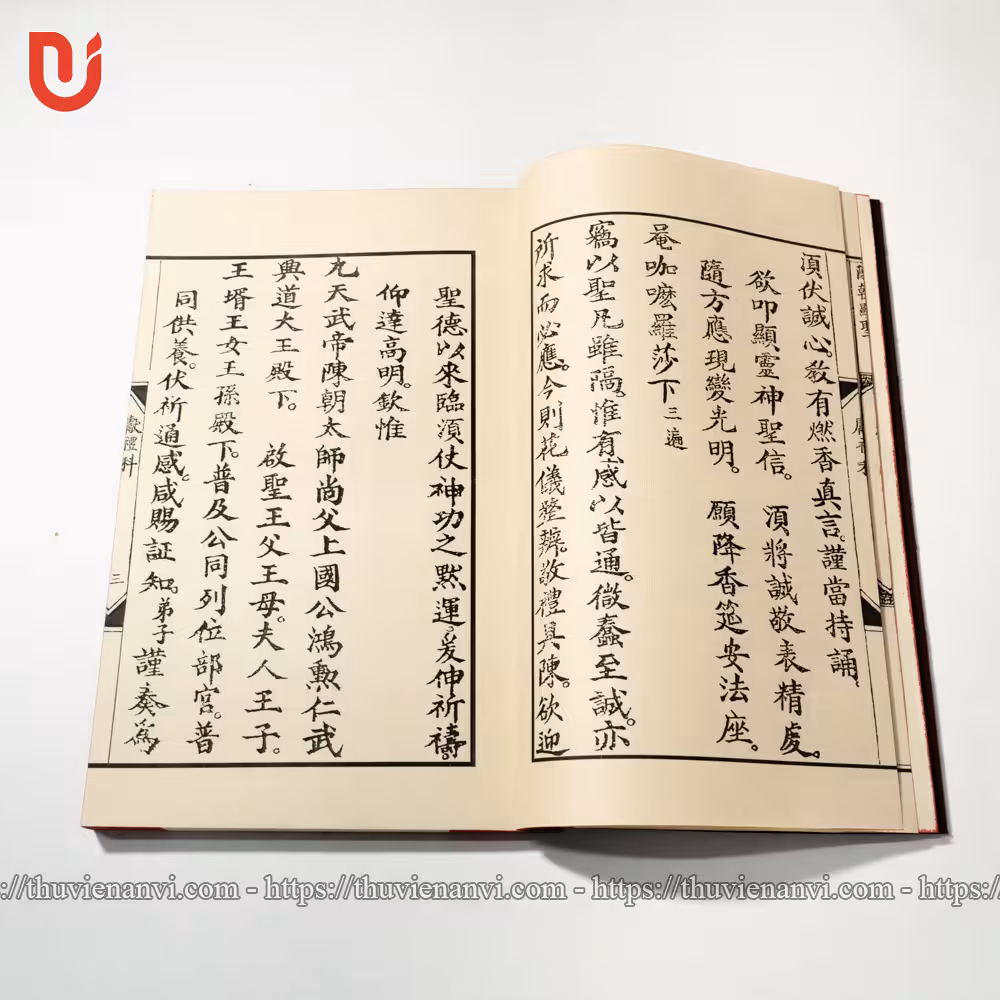 湏伏誠心。教有燃香真言。謹當持誦。
欲叩顯靈神聖信。 湏將誠敬表精虔。
隨方應現變光明。 願降香筵安法座。
唵咖嚒羅莎下 三遍
窩以聖凡雖隔。惟有感以皆通。微蠢至誠。亦
所求而必應。今則花儀整辦。敬禮具陳。欲迎
聖德以來臨湏仗神功之默運爰伸祈禱。
仰達高明。欽惟
九天武帝陳朝太師尚父上國公鴻勲仁武
興道大王殿下。 啟聖王父王母。夫人王子。
王壻王女王孫殿下。普及公同列位部宮。普
同供養。伏祈通感。咸賜証知。弟子謹奏為
獻禮科
三
https://thuvienanvi.com - https://thuvienanvi.com - https://thuvienanvi.com - https://